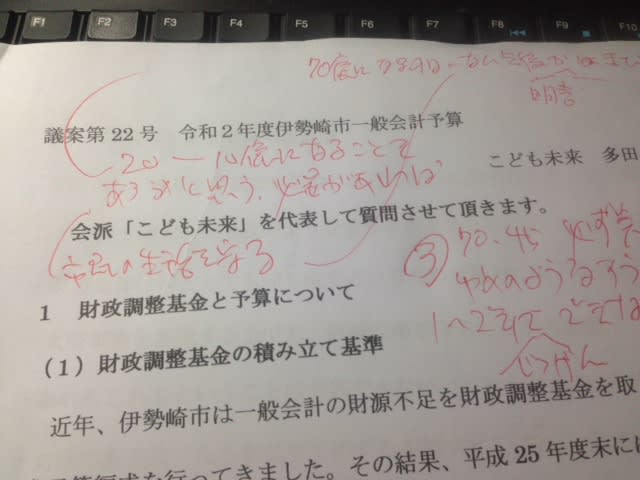 F1 F2 F3 F4 F5 F6 F7 F8 F9 F10
70億に
明言
議案第22号 令和2年度伊勢崎市一般会計予算
20 一 10億になることも
あるかと思う、必要があれば
こども未来 多田
会派「こども未来」を代表して質問させて頂きます。
市民の生活を守る
③ 70、45 必ず
1 財政調整基金と予算について
(1)財政調整基金の積み立て基準
近年、伊勢崎市は一般会計の財源不足を財政調整基金を取
予算編成を行ってきました。その結果、平成25年度末には